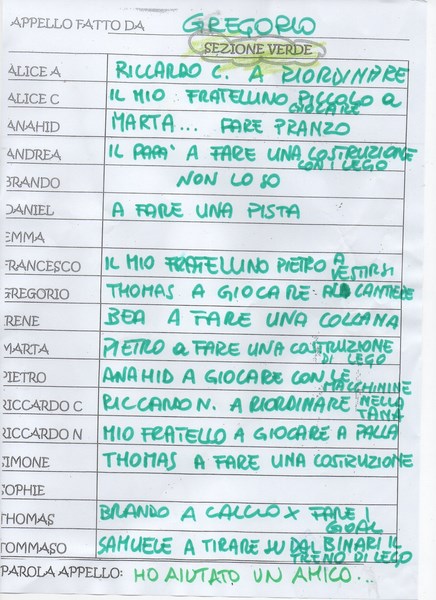 APPELLO FATTO DA GREGORIO
SEZIONE VERDE
ALICE A RICCARDO C. A RIORDINARE
ALICE C IL MIO FRATELLINO PICCOLO A
GIOCARE
ANAHID MARTA... FARE PRANZO
ANDREA IL PAPA' A FARE UNA COSTRUZIONE
CON I LEGO
BRANDO NON LO SO
DANIEL A FARE UNA PISTA
EMMA
FRANCESCO IL MIO FRATELLINO PIETRO A
VESTIRSI
GREGORIO THOMAS A GIOCARE AL CANTIERE
IRENE BEA A FARE UNA COLLANA
MARTA PIETRO A FARE UNA COSTRUZIONE
DI LEGO
PIETRO ANAHID A GIOCARE CON LE
MACCHININE
RICCARDO C RICCARDO N. A RIORDINARE NELLA
TANA
RICCARDO N MIO FRATELLO A GIOCARE A PALLA
SIMONE THOMAS A FARE UNA COSTRUZIONE
SOPHIE
THOMAS BRANDO A CALCIO X FARE I
GOAL
TOMMASO SAMUELE A TIRARE SU DAL BINARI IL
TRENO DI LEGO
PAROLA APPELLO: HO AIUTATO UN AMICO...